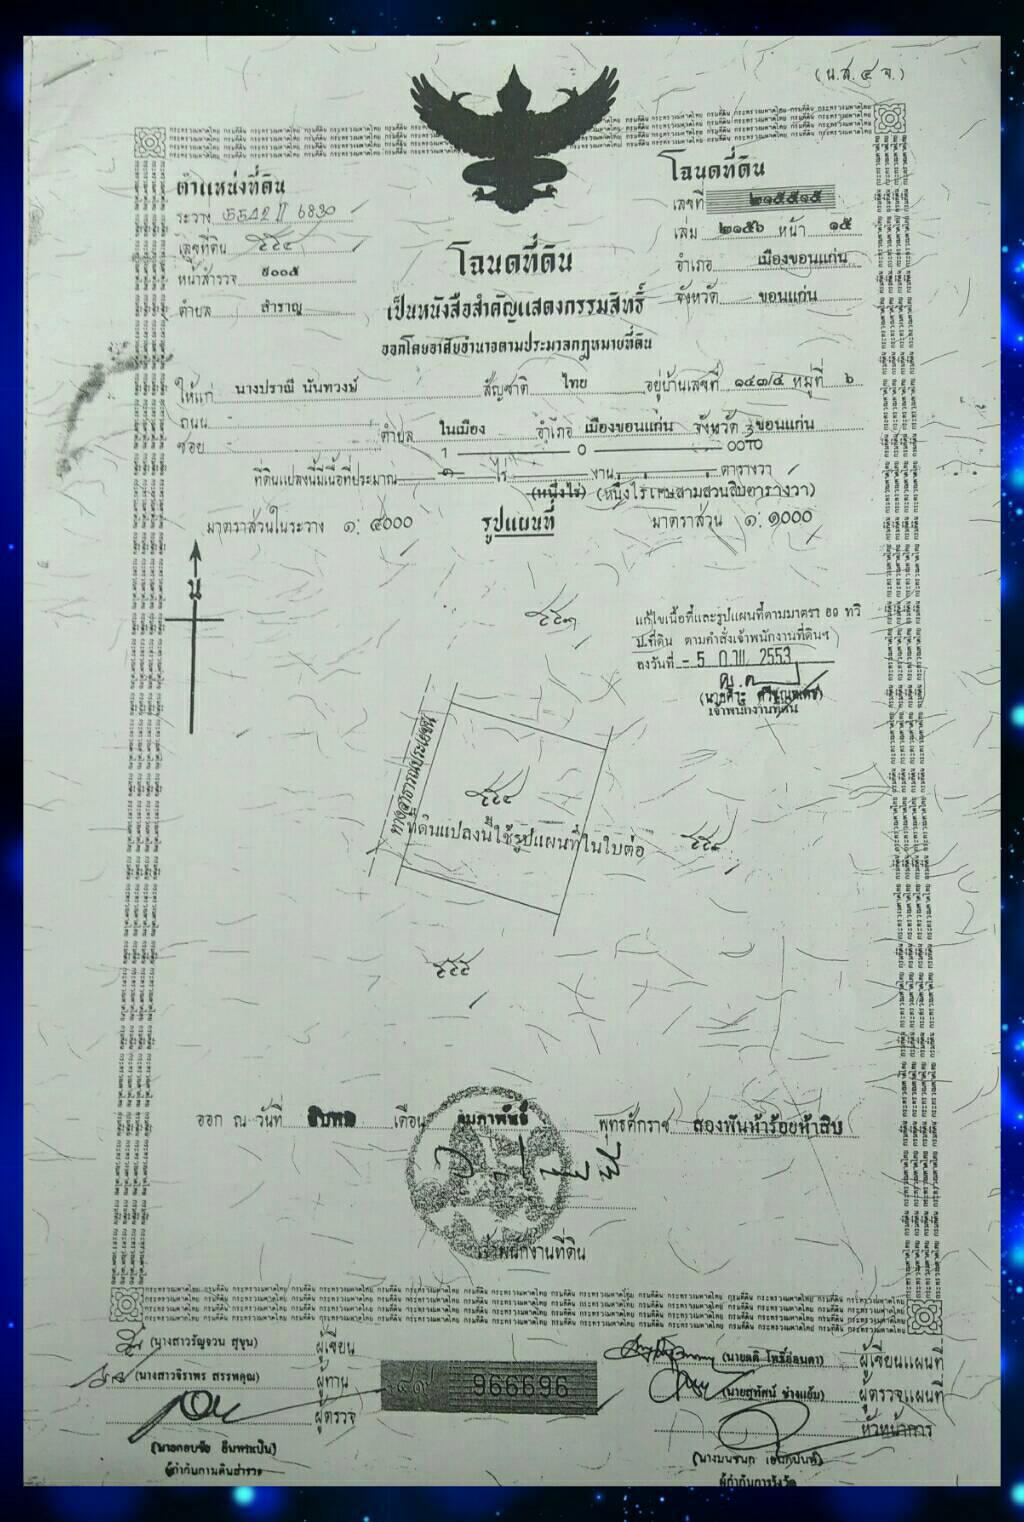 (น.ส.๔ จ.)
ตำแหน่งที่ดิน
ระวาง 5542 II 6830
เลขที่ดิน ๕๕๔
หน้าสำรวจ ๕๐๐๕
ตำบล สำราญ
โฉนดที่ดิน
เลขที่ ๒๑๕๕๑๕
เล่ม ๒๑๕๖ หน้า ๑๕
อำเภอ เมืองขอนแก่น
จังหวัด ขอนแก่น
โฉนดที่ดิน
เป็นหนังสือสำคัญแสดงกรรมสิทธิ์
ออกโดยอาศัยอำนาจตามประมวลกฎหมายที่ดิน
ให้แก่ นางปราณี นันทวงษ์ สัญชาติ ไทย อยู่บ้านเลขที่ ๑๔๓/๔ หมู่ที่ ๖
ถนน
ซอย ตำบล ในเมือง อำเภอ เมืองขอนแก่น จังหวัด ขอนแก่น
1 0
ที่ดินแปลงนี้มีเนื้อที่ประมาณ ๑ ไร่ งาน ตารางวา
(หนึ่งไร่) (หนึ่งไร่เศษสามส่วนสิบตารางวา)
มาตราส่วนในระวาง ๑: ๔๐๐๐ รูปแผนที่ มาตราส่วน ๑: ๑๐๐๐
น
แก้ไขเนื้อที่และรูปแผนที่ตามมาตรา ๖๑ ทวิ
ป.ที่ดิน ตามคำสั่งเจ้าพนักงานที่ดินฯ
ลงวันที่ - 5 ก.ย. 2553
เจ้าพนักงานที่ดิน
ทางสาธารณประโยชน์
๕๕๔
ที่ดินแปลงนี้ใช้รูปแผนที่ในใบต่อ
๕๕๕
ออก ณ วันที่ สิบหก เดือน กุมภาพันธ์ พุทธศักราช สองพันห้าร้อยห้าสิบ
เจ้าพนักงานที่ดิน
(นางสาวรัญจวน สุขุน) ผู้เขียน
(นางสาวจิราพร สรรพคุณ) ผู้ทาน
ผู้ตรวจ
966696
ผู้เขียนแผนที่
(นายสุทัศน์ ช่างแย้ม) ผู้ตรวจแผนที่
หัวหน้าการ
ผู้กำกับการเดินสำรวจ
ผู้กำกับการรังวัด